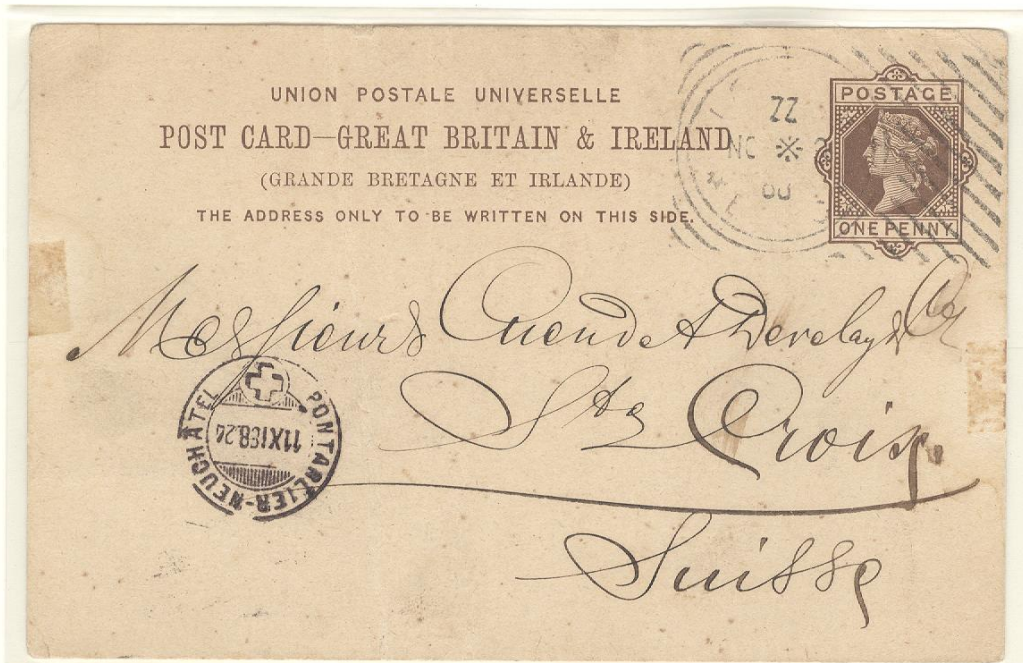 UNION POSTALE UNIVERSELLE
POST CARD—GREAT BRITAIN & IRELAND
(GRANDE BRETAGNE ET IRLANDE)
THE ADDRESS ONLY TO BE WRITTEN ON THIS SIDE.
POSTAGE
ONE PENNY
22
NO
88
Messieurs Cuendet Develay & Cie
Ste Croix
Suisse
PONTARLIER-NEUCHATEL
11XI88.24